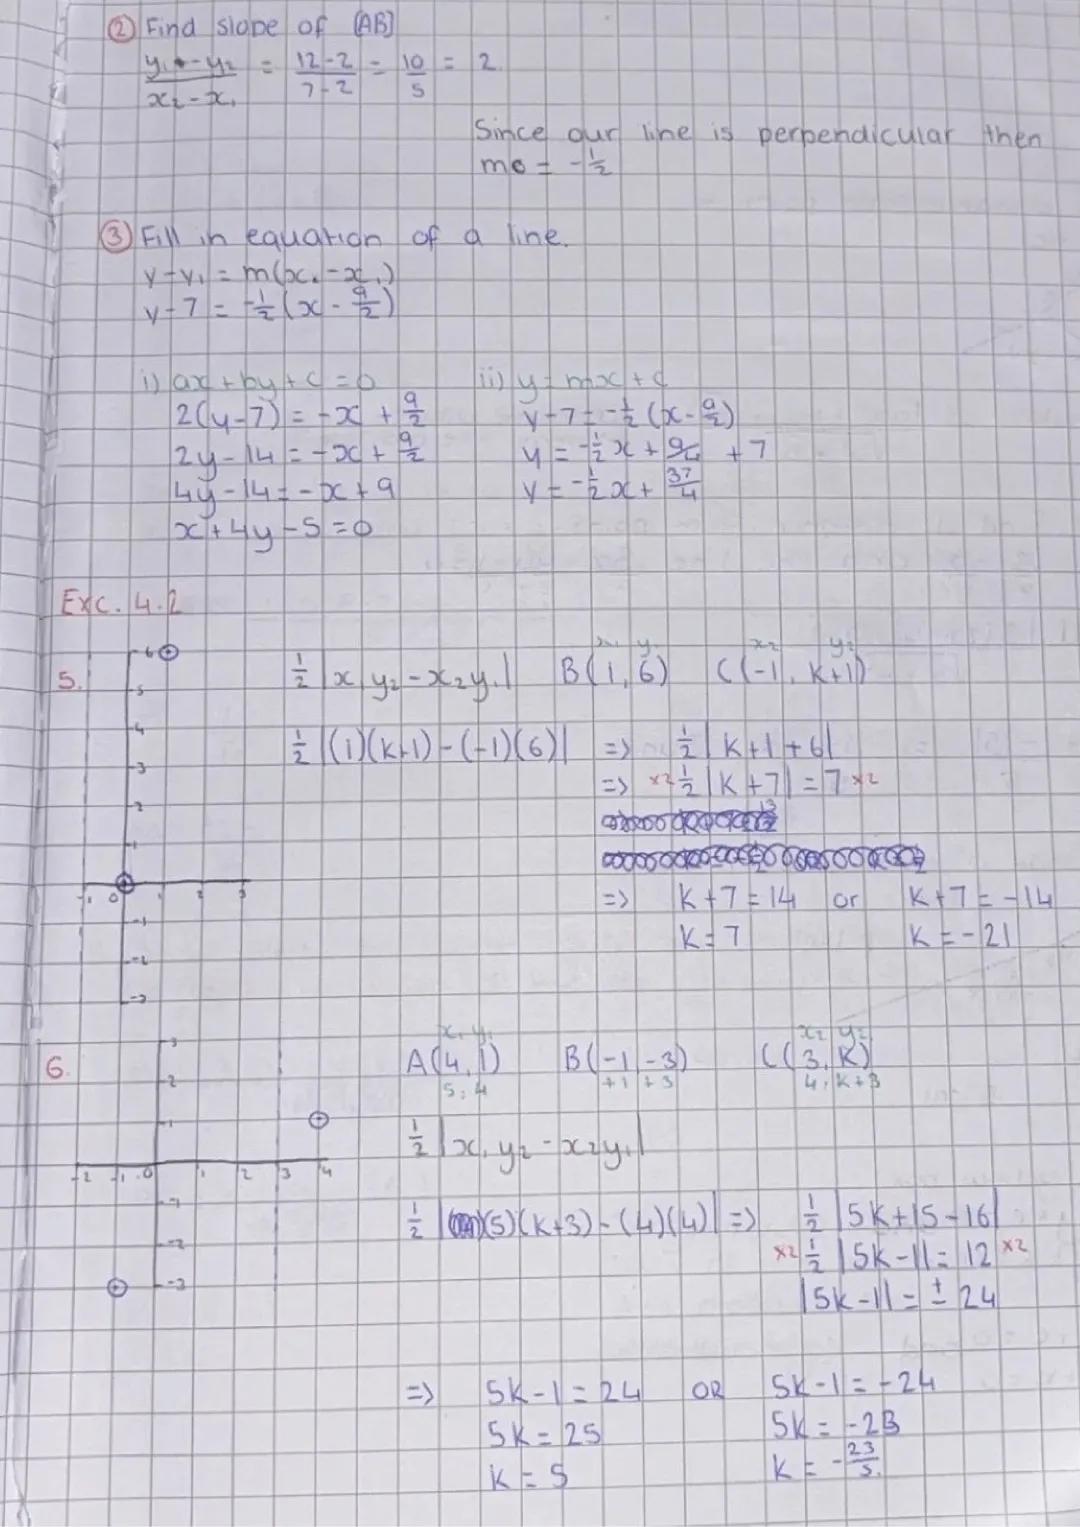 ② Find slope of [AB]
y₁ - y₂ / x₂ - x₁ = 12-2 / 7-2 = 10/5 = 2
Since our line is perpendicular then
m = -1/2
③ Fill in equation of a line.
y - y₁ = m(x - x₁)
y - 7 = -1/2 (x - 9/2)
i) ax + by + c = 0
2(y-7) = -x + 9/2
2y - 14 = -x + 9/2
4y - 14 = -x + 9
x + 4y - 5 = 0
ii) y = mx + c
y - 7 = -1/2 (x - 9/2)
y = -1/2 x + 9/4 + 7
y = -1/2 x + 37/4
Exc. 4.2
5.
6
5
4
3
2
1
-1 0 1 2 3
-1
-2
-3
x₁ y₁ x₂ y₂
1/2 |x₁y₂ - x₂y₁| B(1, 6) C(-1, k+1)
1/2 |(1)(k+1) - (-1)(6)| => 1/2 |k+1+6|
=> ×2 1/2 |k+7| = 7 ×2
=> k+7 = 14 or k+7 = -14
k = 7 k = -21
6.
3
2
1
-2 -1 0 1 2 3 4
-1
-2
-3
x₁ y₁ x₂ y₂
A(4, 1) B(-1, -3) C(3, k)
5, 4 +1 +3 4, k+3
1/2 |x₁y₂ - x₂y₁|
1/2 |(5)(k+3) - (4)(4)| => 1/2 |5k+15-16|
×2 1/2 |5k-1| = 12 ×2
|5k-1| = ± 24
=> 5k-1 = 24 OR 5k-1 = -24
5k = 25 5k = -23
k = 5 k = -23/5